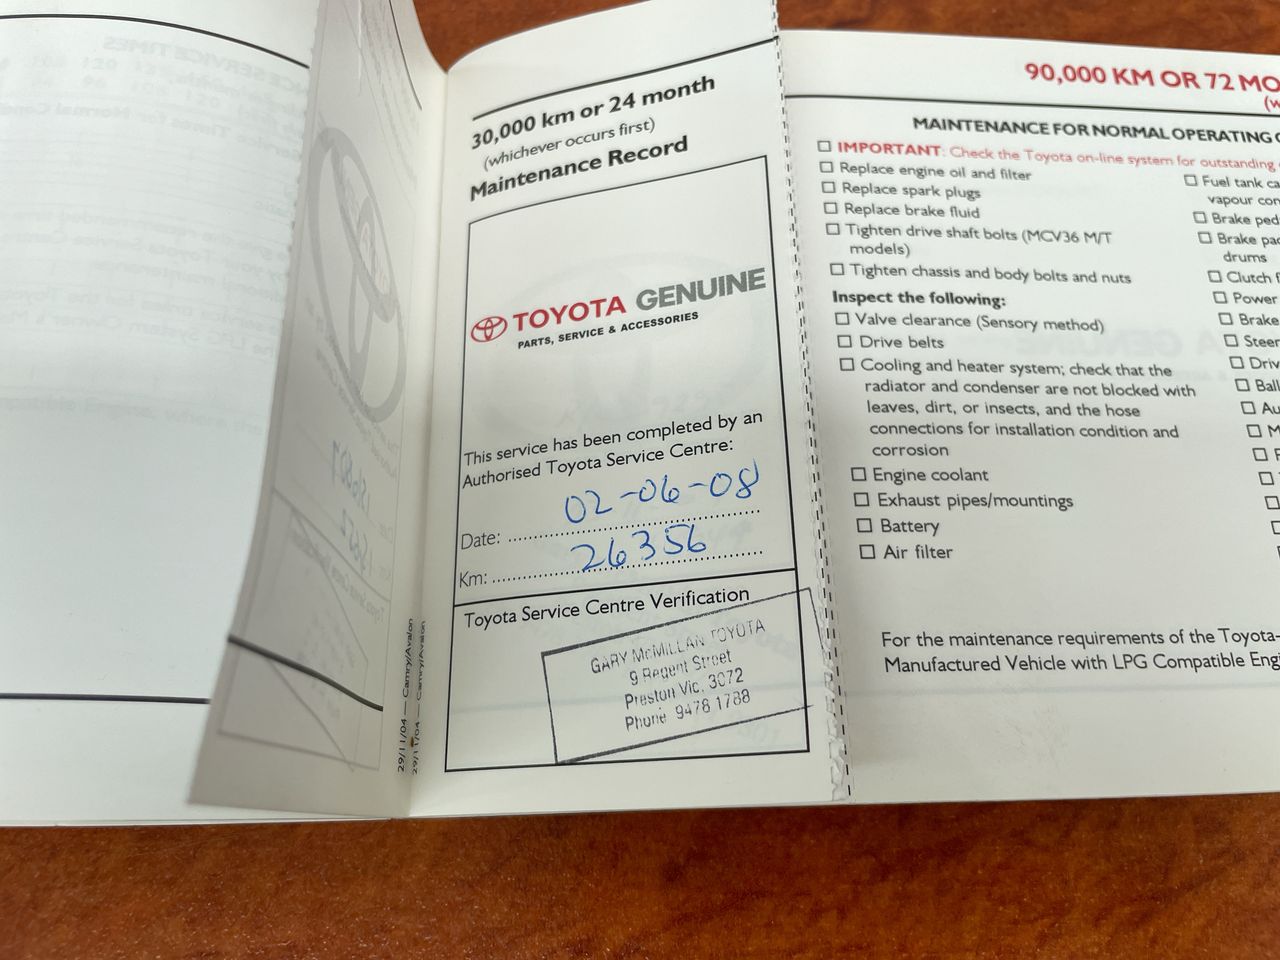 30,000 km or 24 month
(whichever occurs first)
Maintenance Record
TOYOTA GENUINE
PARTS, SERVICE & ACCESSORIES
This service has been completed by an
Authorised Toyota Service Centre:
Date: 02-06-08
Km: 26356
Toyota Service Centre Verification
GARY McMILLAN TOYOTA
9 Regent Street
Preston Vic. 3072
Phone 9478 1788
29/11/04 — Camry/Avalon
29/11/04 — Camry/Avalon
90,000 KM OR 72
MAINTENANCE FOR NORMAL OPERATING
IMPORTANT: Check the Toyota on-line system for outstanding
Replace engine oil and filter
Replace spark plugs
Replace brake fluid
Tighten drive shaft bolts (MCV36 M/T
models)
Tighten chassis and body bolts and nuts
Inspect the following:
Valve clearance (Sensory method)
Drive belts
Cooling and heater system; check that the
radiator and condenser are not blocked with
leaves, dirt, or insects, and the hose
connections for installation condition and
corrosion
Engine coolant
Exhaust pipes/mountings
Battery
Air filter
Fuel tank
vapour
Brake
Brake
drums
Clutch
Power
Brake
For the maintenance requirements of the Toyota-
Manufactured Vehicle with LPG Compatible